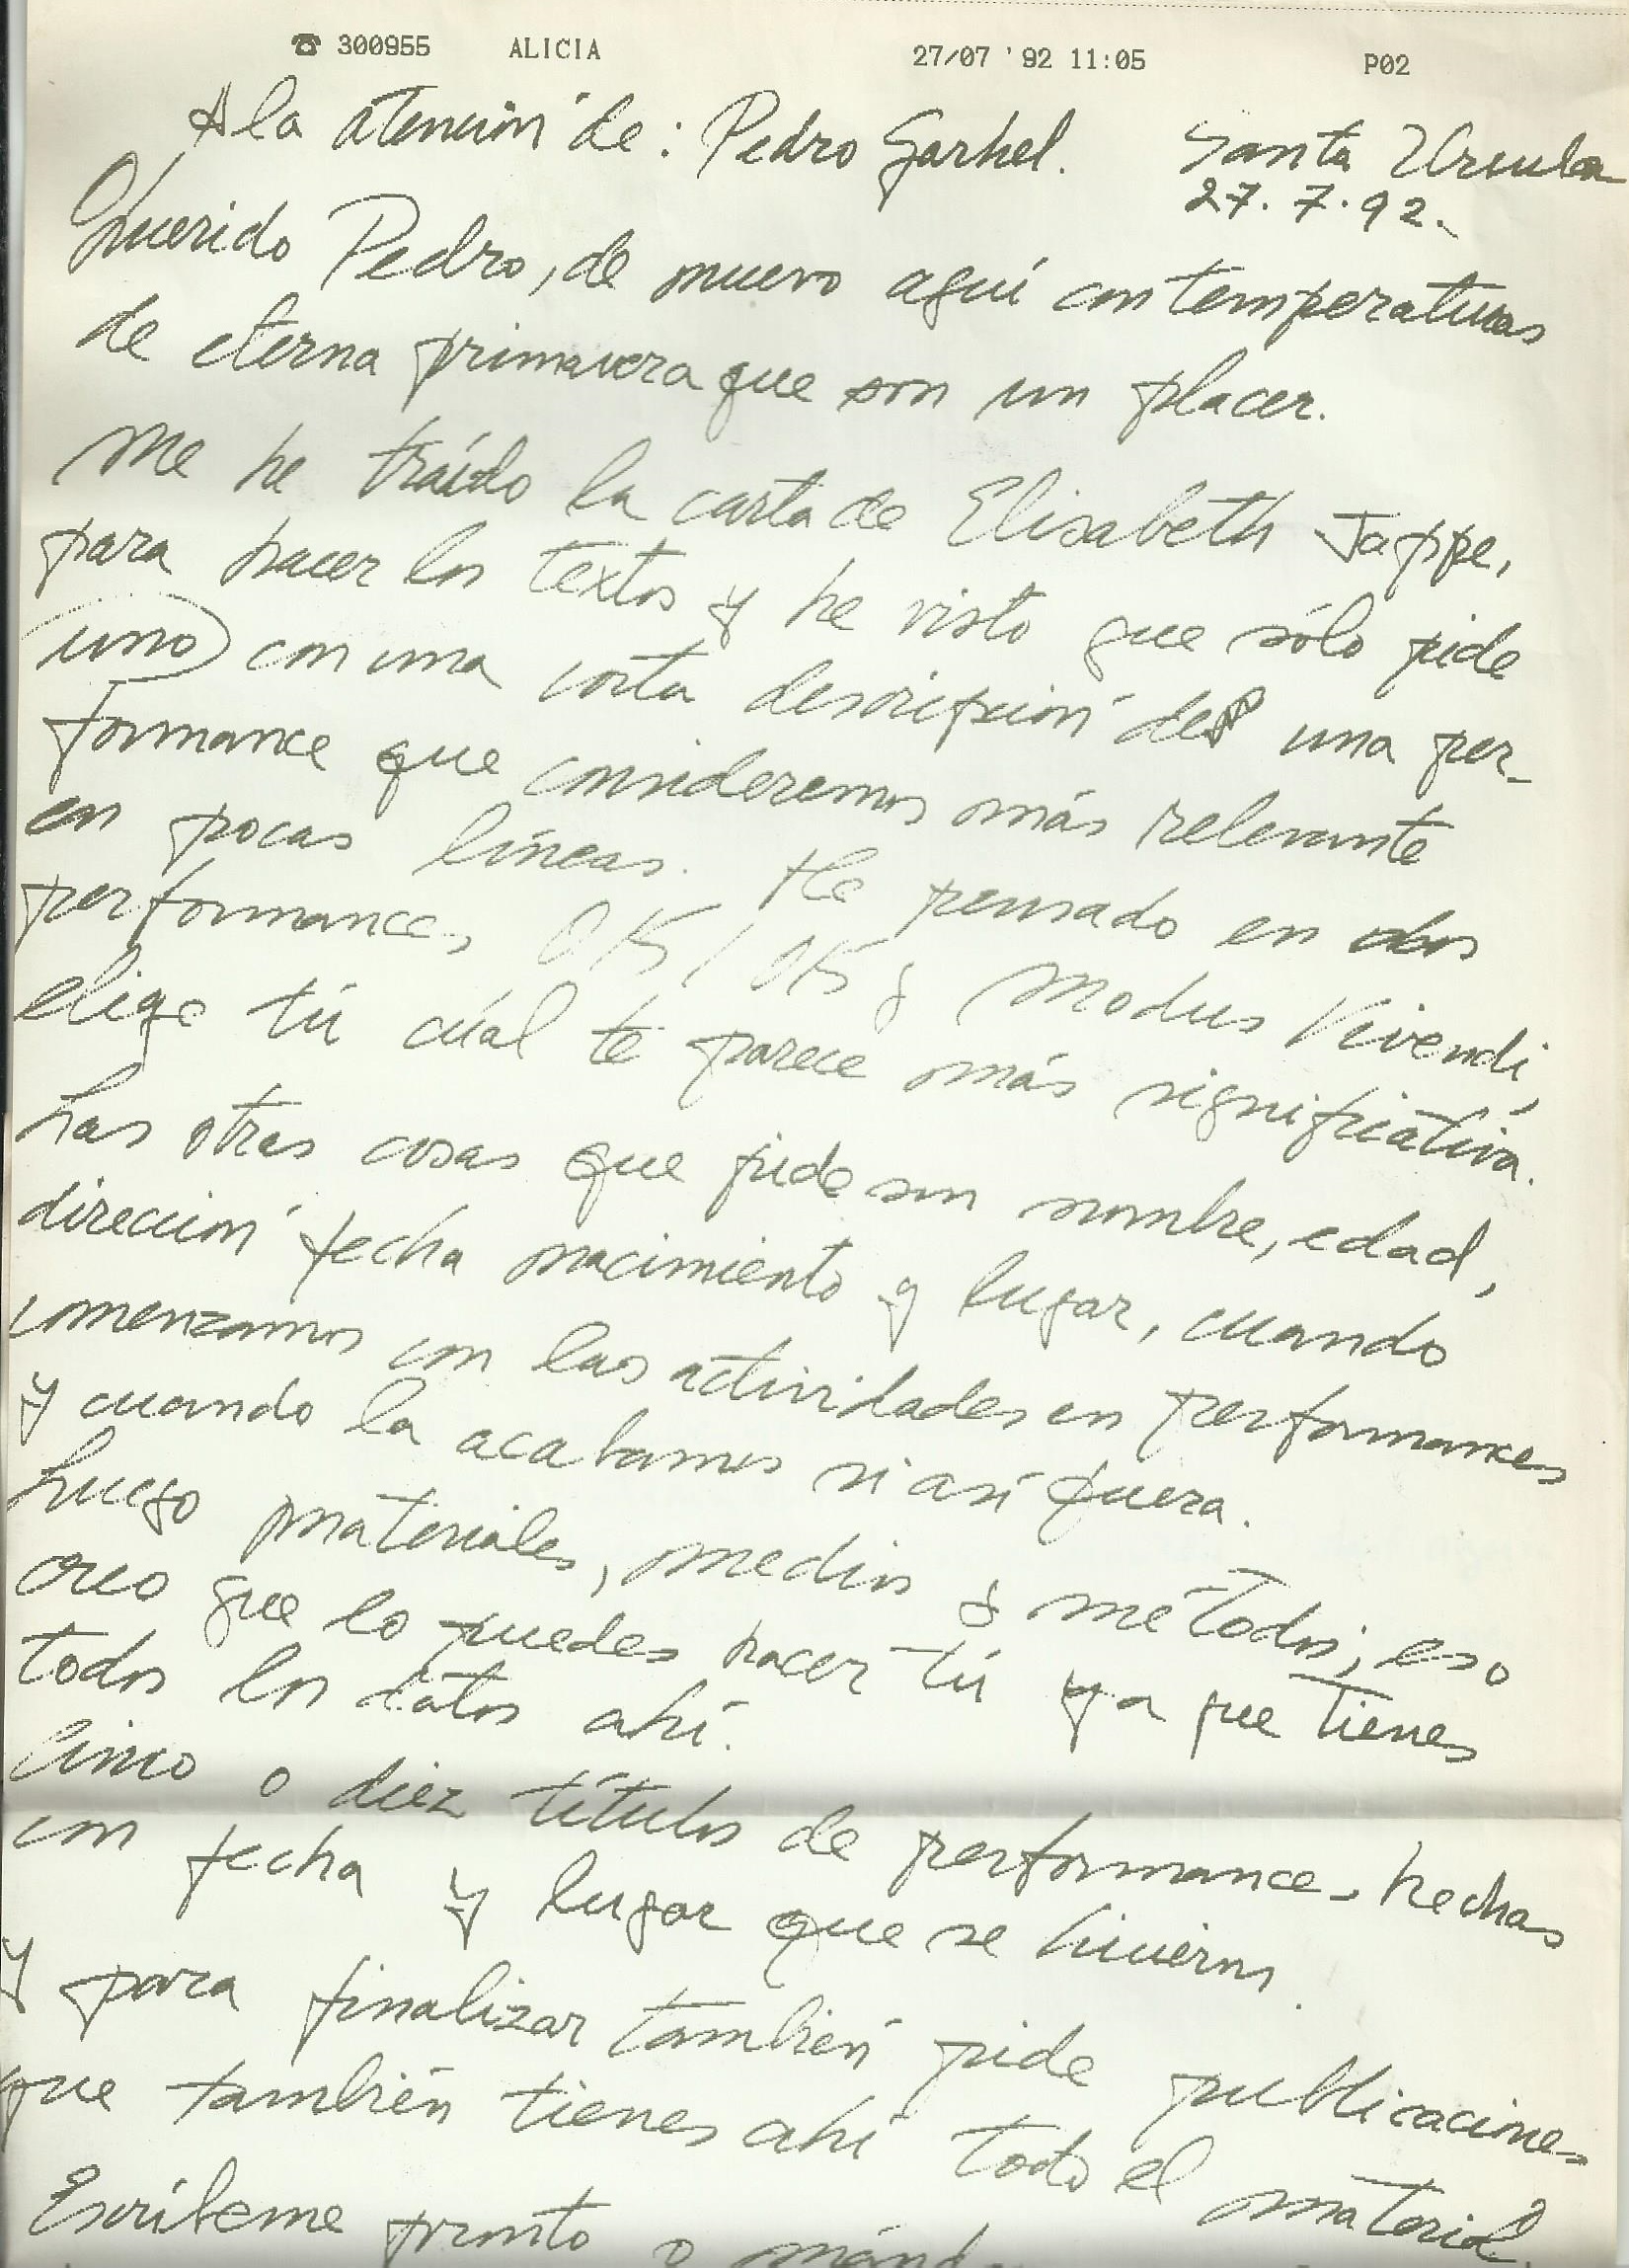 ☎ 300955 ALICIA 27/07 '92 11:05 P02
A la atención de: Pedro Garhel. Santa Ursula
27. 7. 92.
Querido Pedro, de nuevo aquí con temperaturas
de eterna primavera que son un placer.
Me he traído la carta de Elisabeth Jappe,
para hacer los textos y he visto que sólo pide
uno con una corta descripción de una per-
formance que consideremos más relevante
en pocas líneas. He pensado en dos
performances OK/OK y Modus Vivendi,
elige tú cúal te parece más significativa.
Las otras cosas que pide son nombre, edad,
dirección fecha nacimiento y lugar, cuando
comenzamos con las actividades en performances
y cuando la acabamos si así fuera.
Luego materiales, medios y métodos; eso
creo que lo puedes hacer tú ya que tienes
todos los datos ahí.
Cinco o diez títulos de performances hechas
con fecha y lugar que se hicieron.
y para finalizar también pide publicaciones
que también tienes ahí todo el material.
Escríbeme pronto o